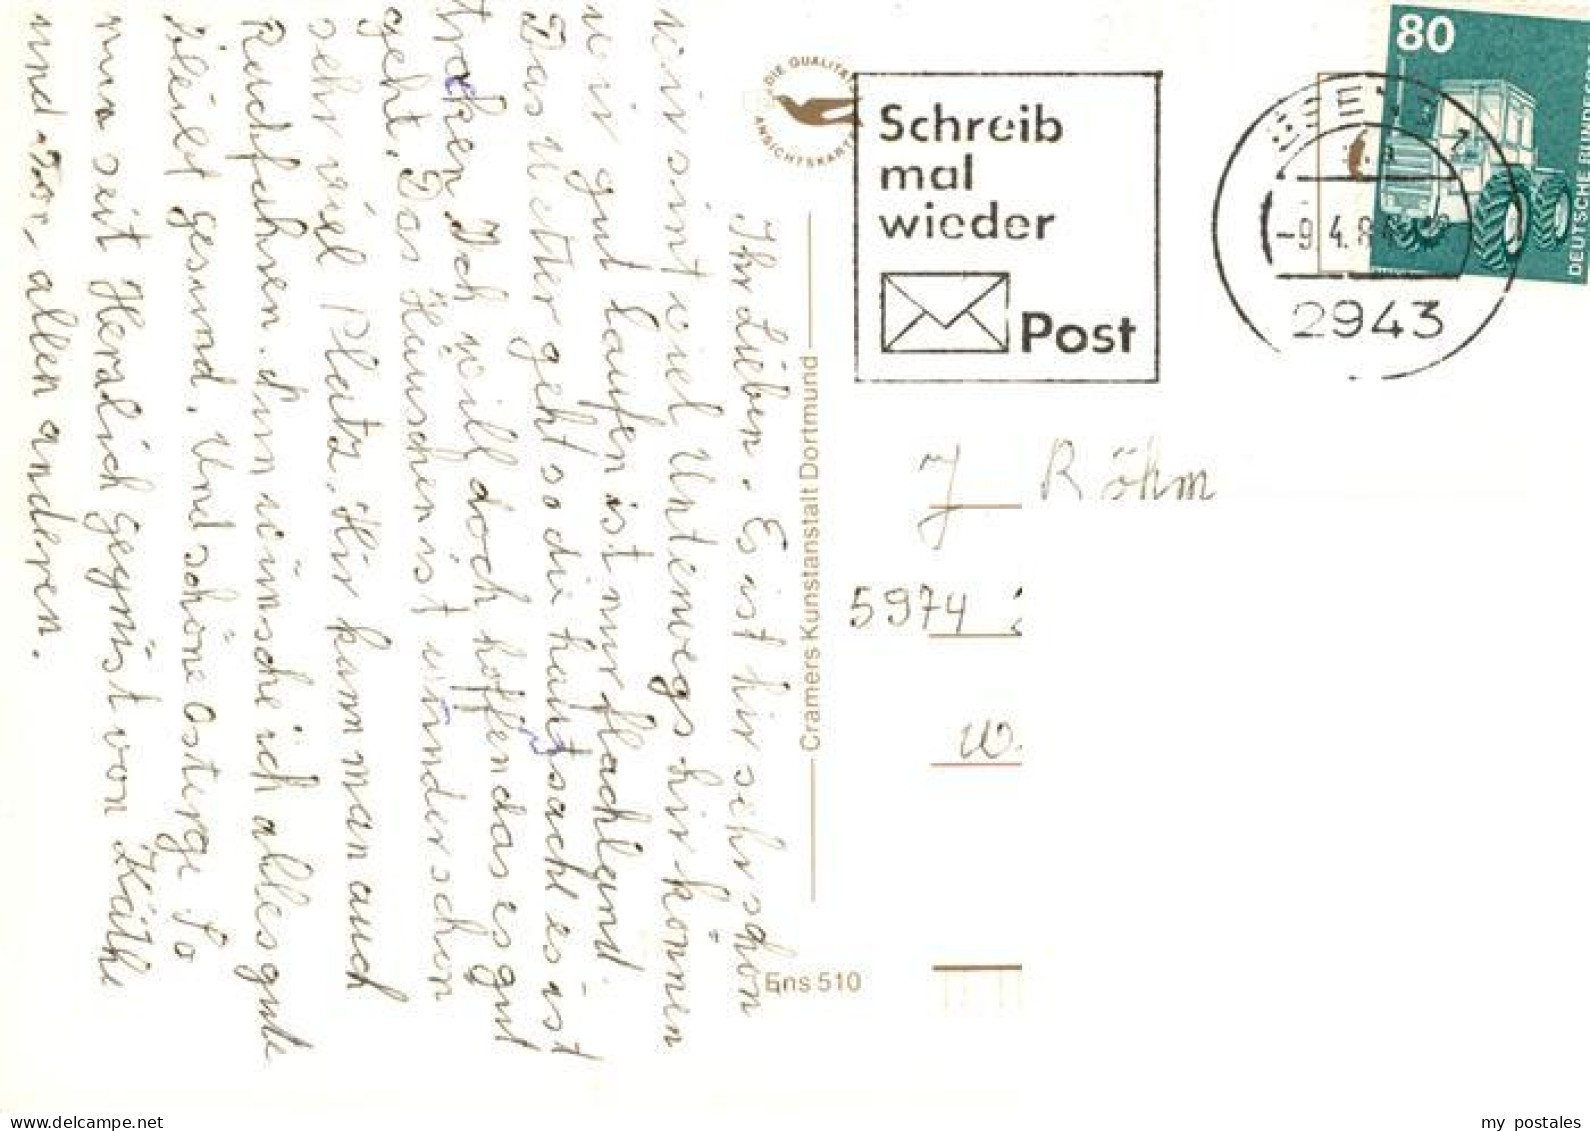 Ihr Lieben. Es ist hir sehr schön
wir sint viel Unterwegs hir können
wir gut laufen ist nur flachland.
Das Weter geht so die hautsache es ist
trocken Ich will doch hoffen das es gut
geht. Das Häuschen ist wunderschön
sehr viel Platz. Hir kann man auch
Radfahren. Nun wünsche ich alles gute
bleibt gesund. Und schöne osterge So
nun seit Herslich gegrüst von Käthe
und von allen anderen.
DIE QUALITÄTS
ANSICHTSKARTE
Cramers Kunstanstalt Dortmund
Ens 510
Schreib
mal
wieder
Post
-9.4.8
2943
80
DEUTSCHE BUNDESPOST
J Röhm
5974
W.
my postales